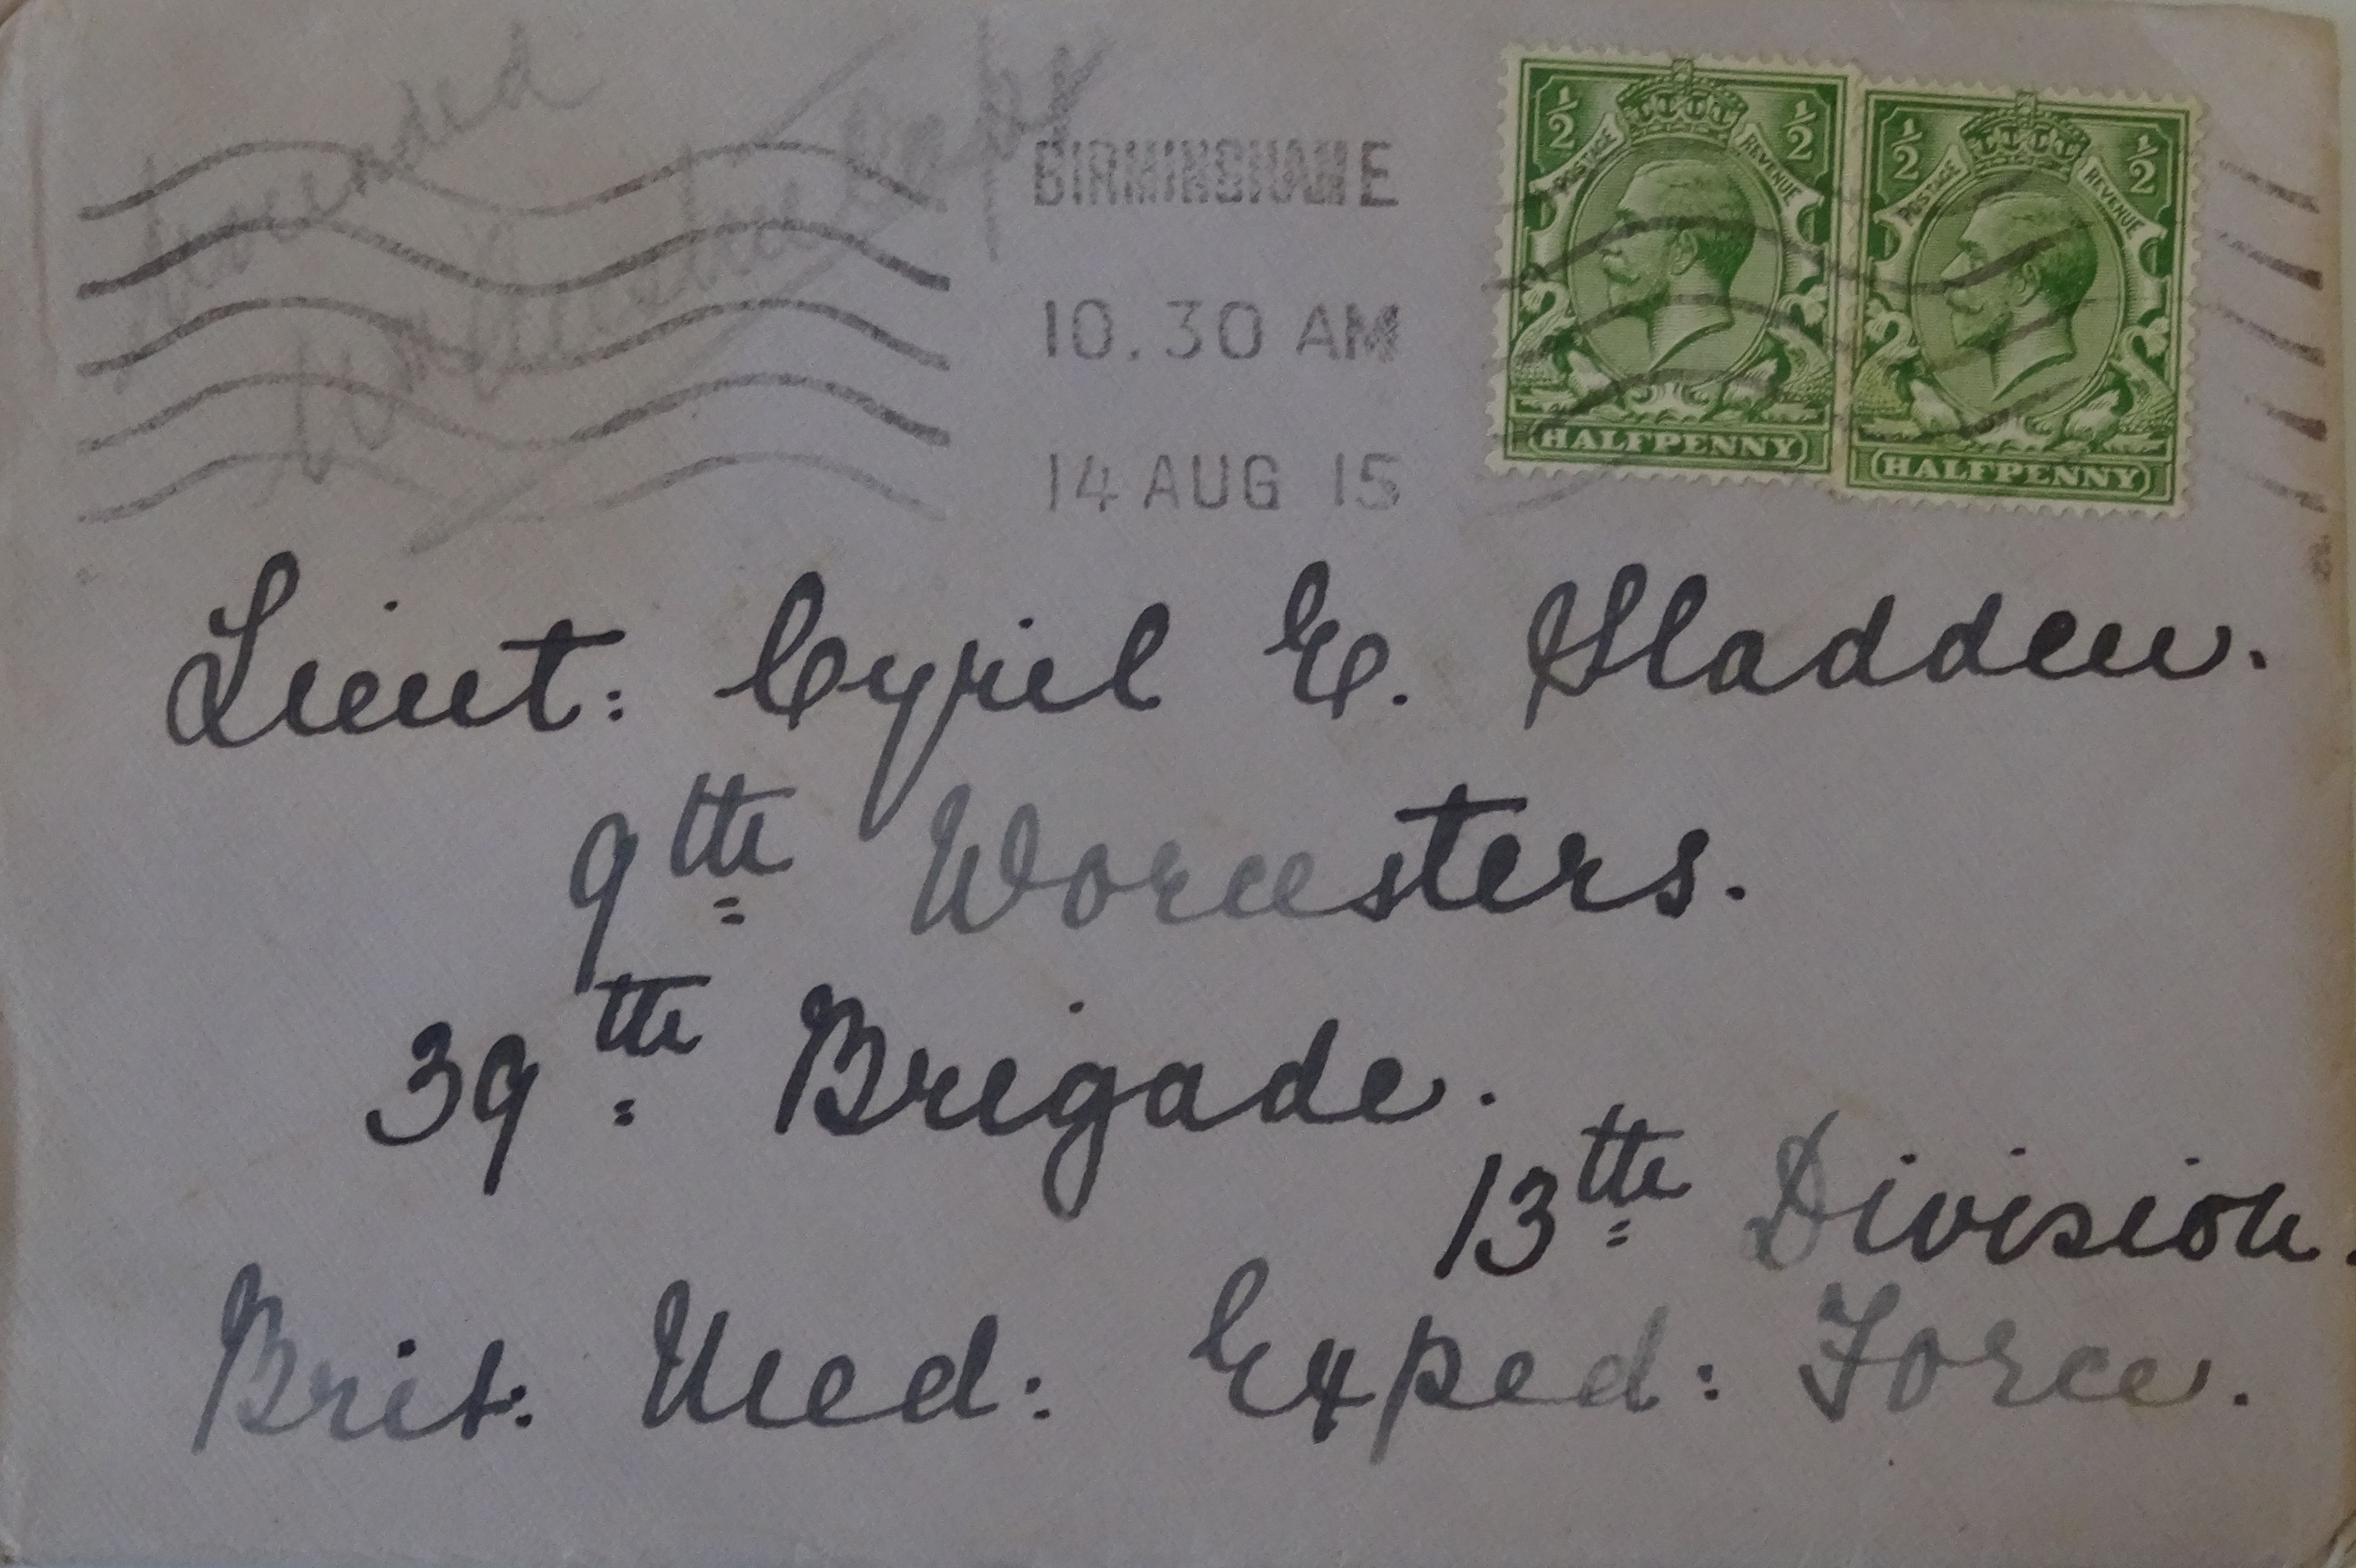 Wounded
BIRMINGHAM
10.30 AM
14 AUG 15
½ ½
POSTAGE REVENUE
HALFPENNY
½ ½
POSTAGE REVENUE
HALFPENNY
Lieut: Cyril E. Sladden.
9th Worcesters.
39th Brigade.
13th Division.
Brit: Med: Exped: Force.